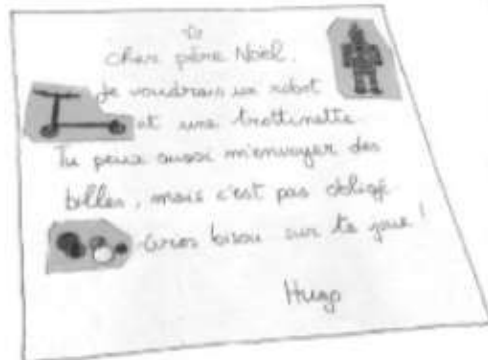 Cher père Noël.
Je voudrais un robot
et une trottinette
Tu peux aussi m'envoyer des
billes, mais c'est pas obligé
Gros bisou sur ta joue !
Hugo